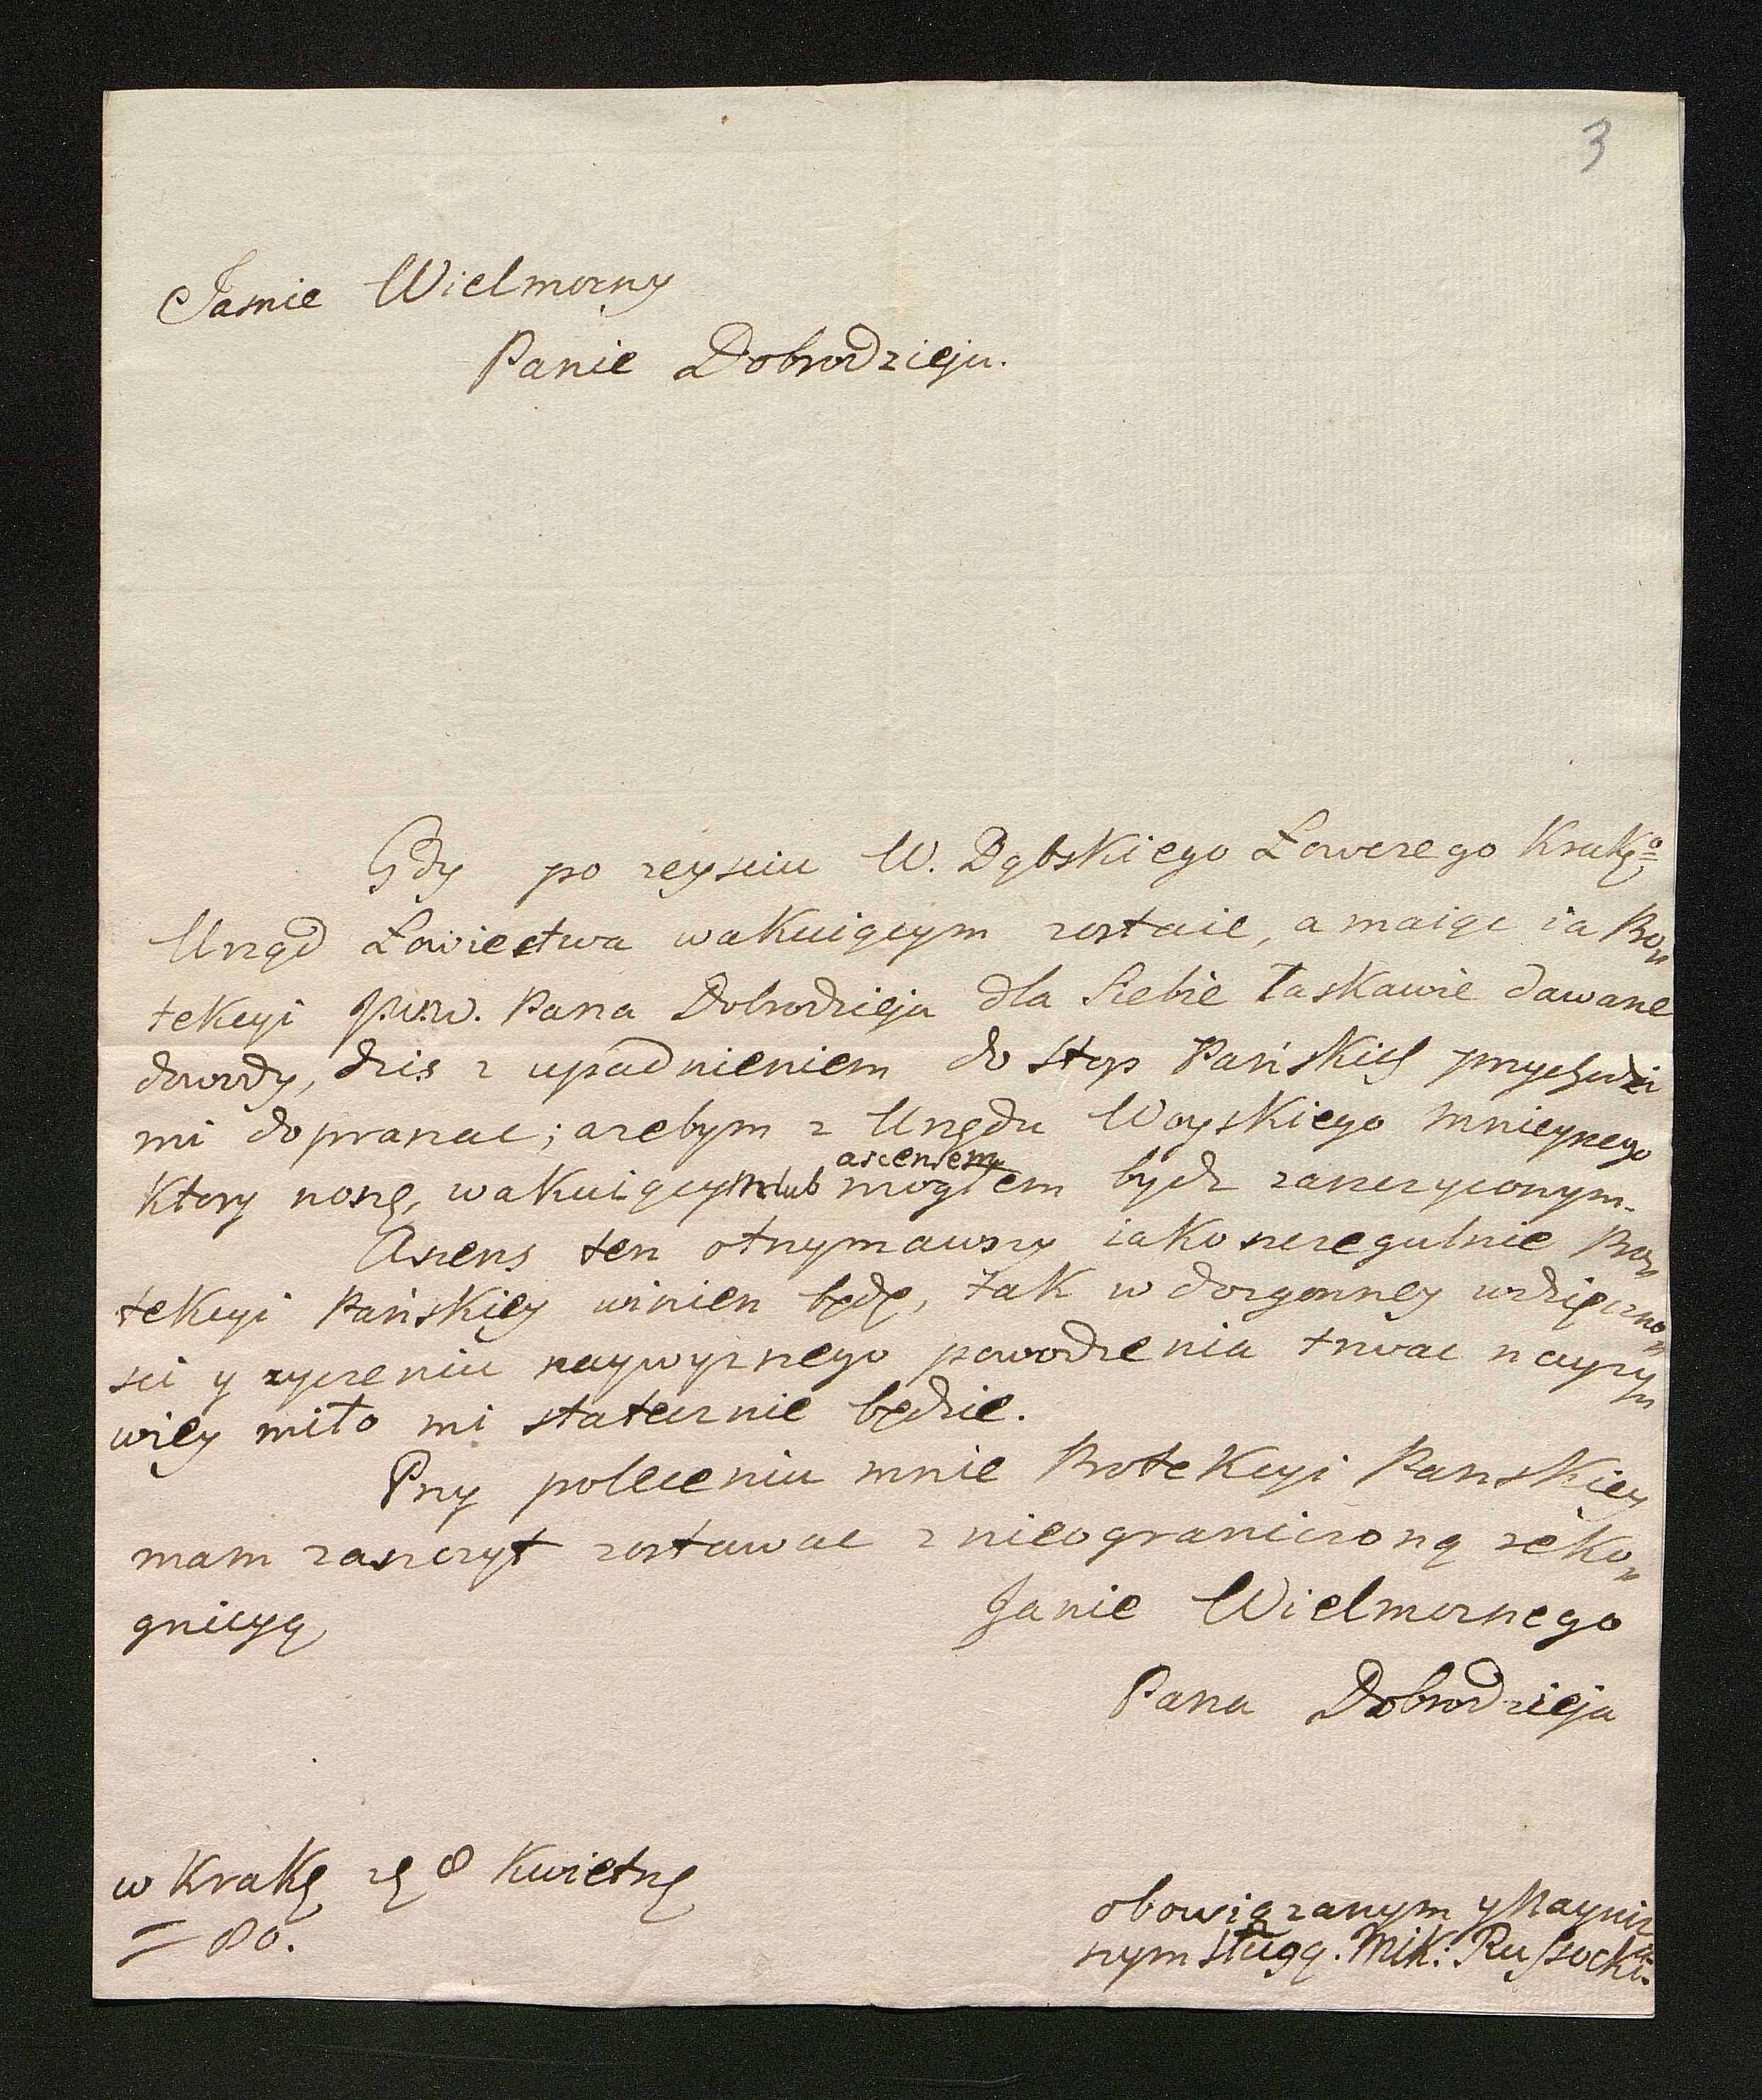 3
Jasnie Wielmozny
Panie Dobrodzieju.
Gdy po zeysciu W. Dąbskiego Łowczego Krakgo
Urząd Łowiectwa wakuiącym zostaie, a maiąc ia Pro=
tekcyi JWW. Pana Dobrodzieja dla Siebie łaskawie dawane
dowody, dzis z upadnieniem do stop Pańskich przychodzi
mi doprasac; azebym z Urzędu Woyskiego mnieyszego
ktory noszę, wakuiącym lub ascensem mogłem bydz zaszczyconym.
Ascens ten otrzymawszy iako szczegulnie Pro=
tekcyi Pańskiey winien będę, tak w dozgonney wdzięczno=
sci y zyczeniu naywyzszego powodzenia trwac nayzy=
wiey miło mi statecznie będzie.
Przy poleceniu mnie Protekcyi Panskiey
mam zaszczyt zostawac z nieograniczoną reko=
gnicyą
Janie Wielmoznego
Pana Dobrodzieja
w Krakę zę 8 Kwietnę
= 80.
obowiązanym y Nayniz=
szym sługą. Mik: Russocki.